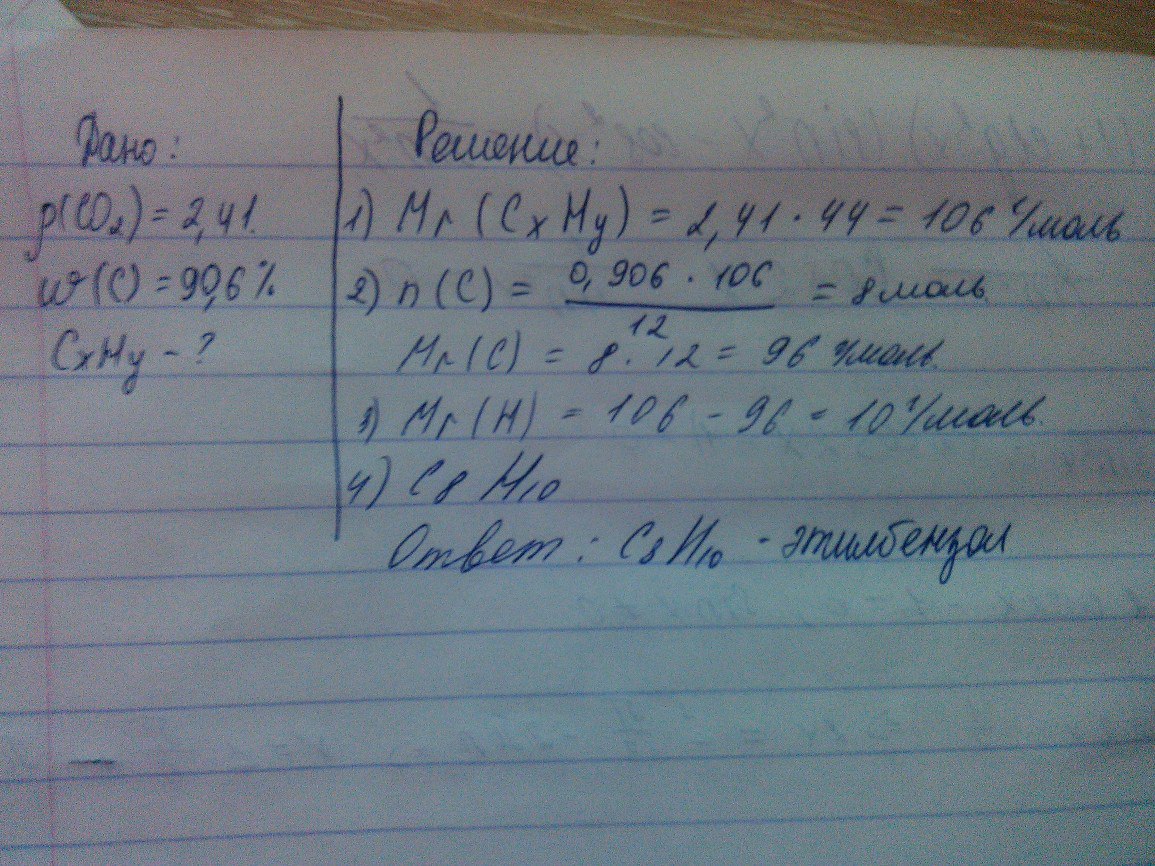 Дано:
p(CO₂) = 2,41.
w(C) = 90,6%
CxHy - ?
Решение:
1) Mr (CxHy) = 2,41 · 44 = 106 г/моль
2) n (C) = 0,906 · 106 / 12 = 8 моль
Mr (C) = 8 · 12 = 96 г/моль.
3) Mr (H) = 106 - 96 = 10 г/моль.
4) C8 H10
Ответ: C8H10 - этилбензол